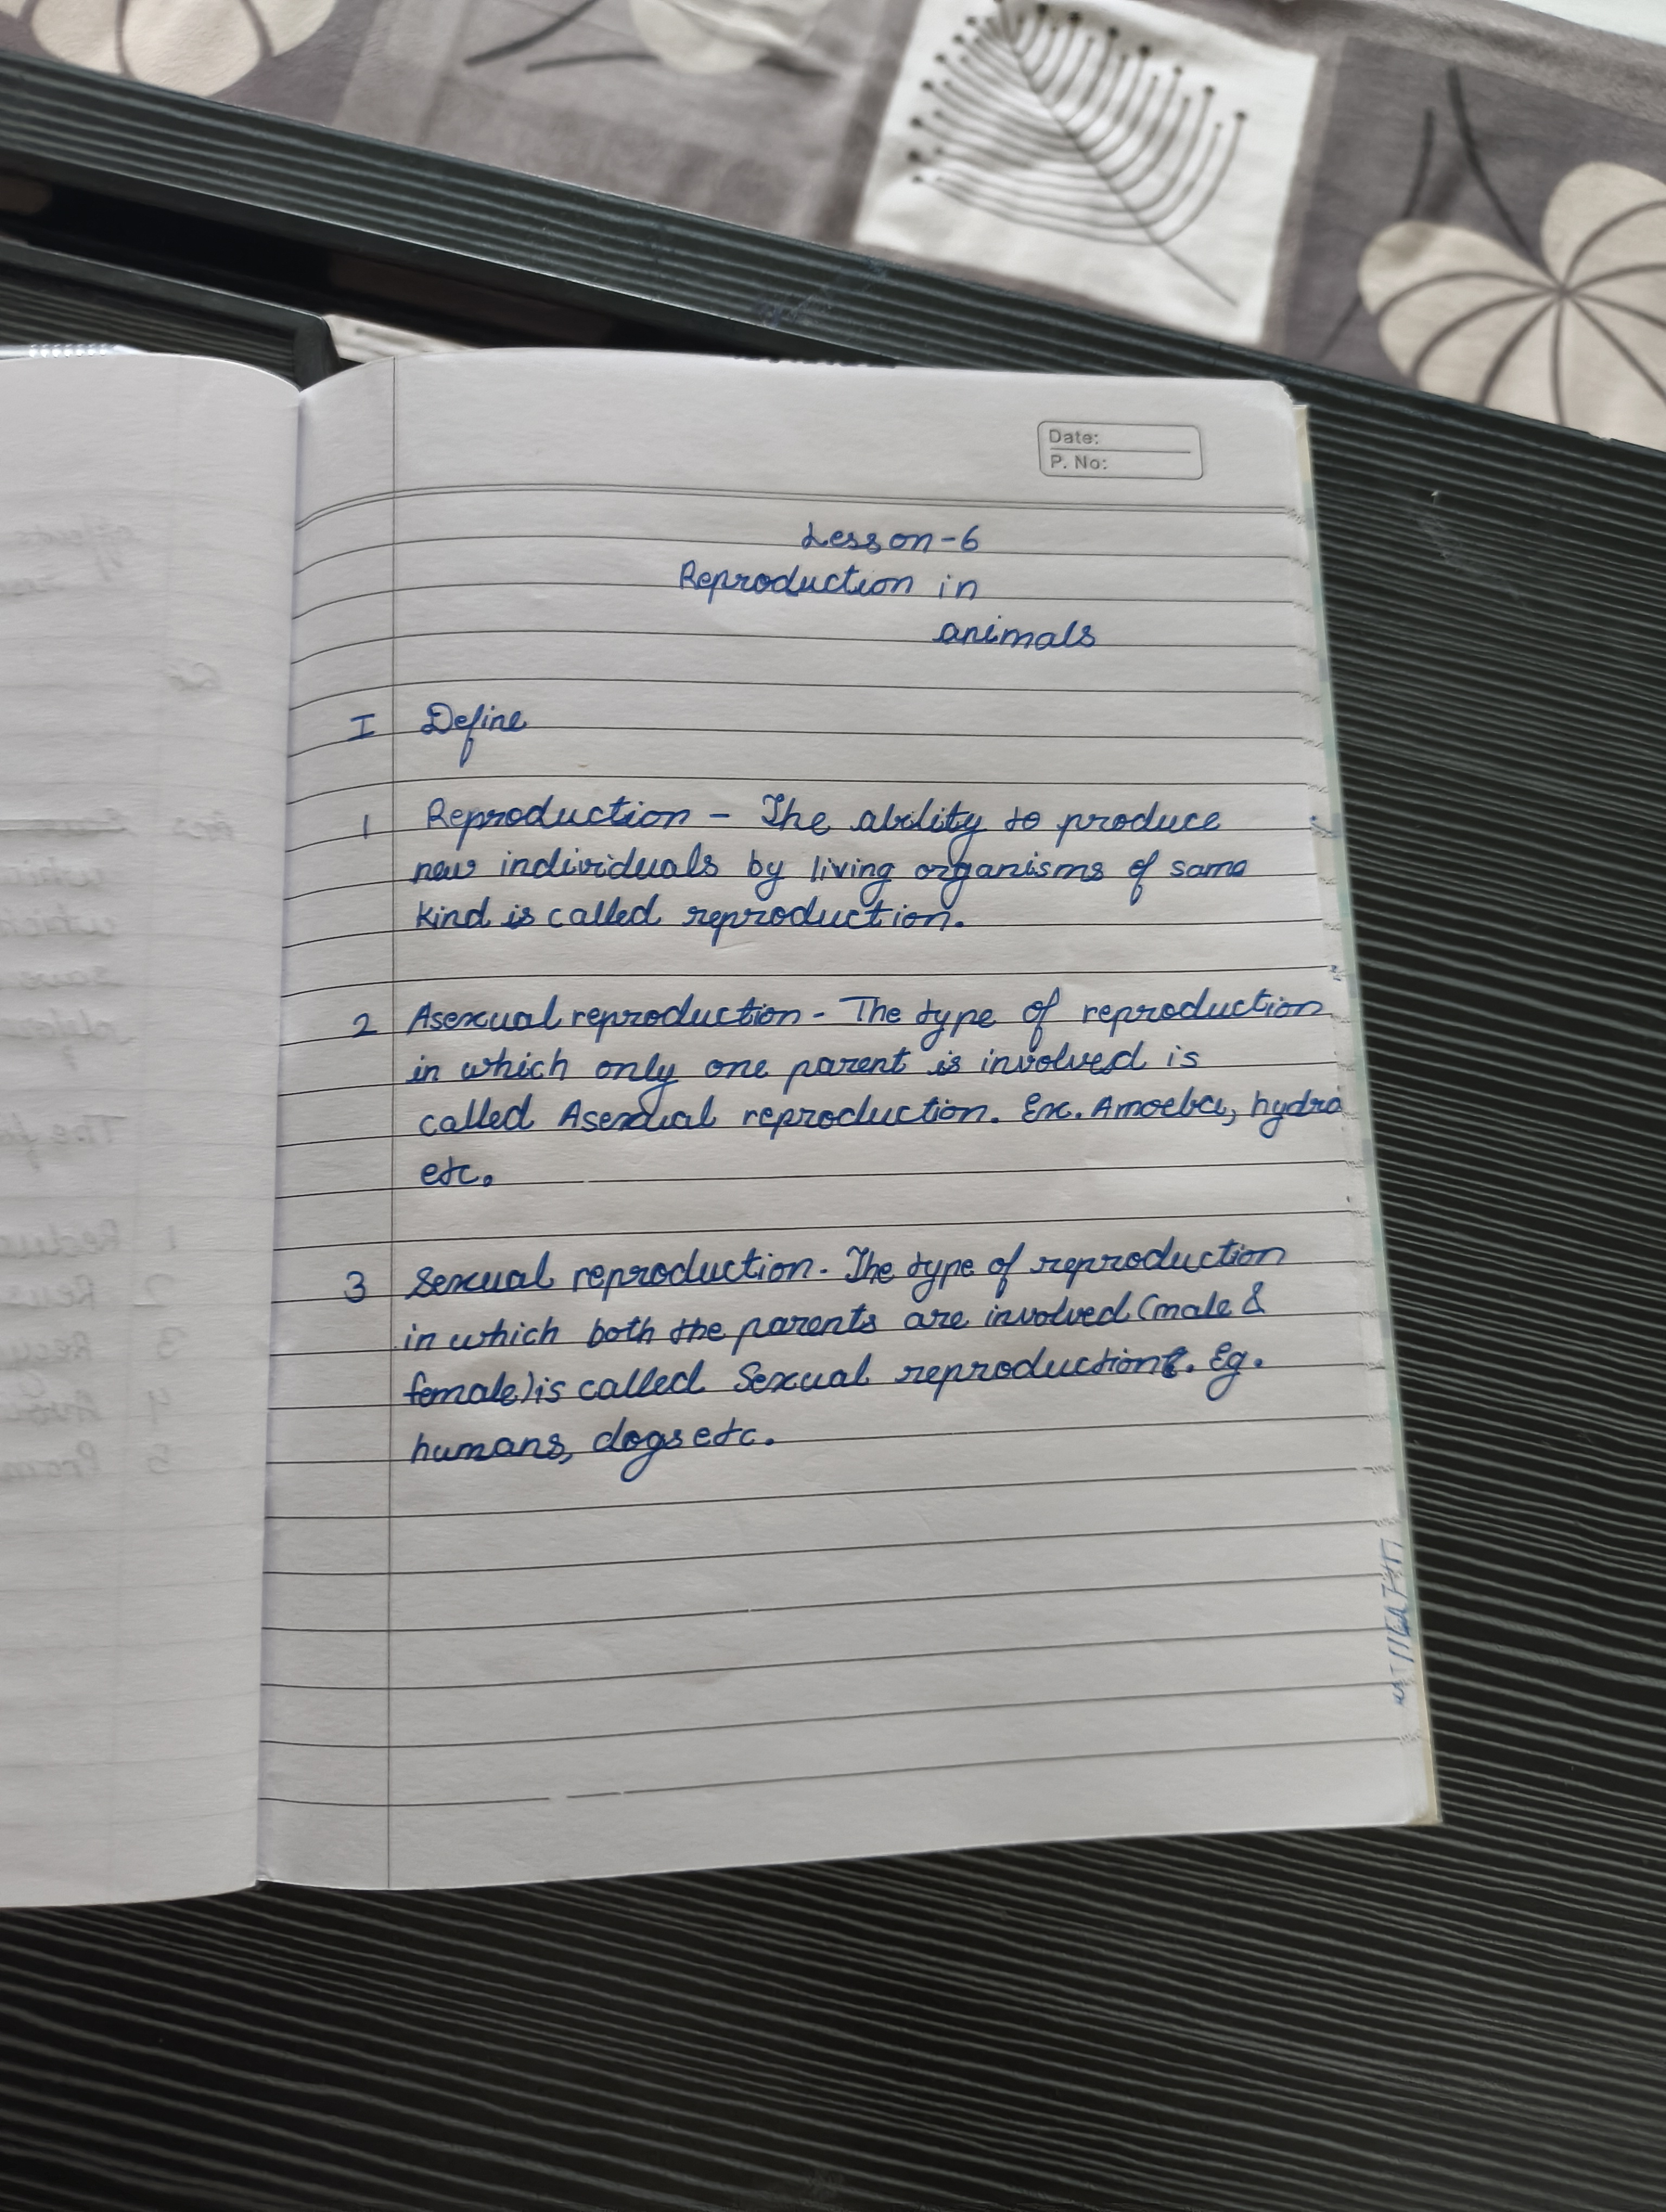 Date:
P. No:
Lesson-6
Reproduction in
animals
I Define
1 Reproduction - The ability to produce
new individuals by living organisms of same
kind is called reproduction.
2 Asexual reproduction - The type of reproduction
in which only one parent is involved is
called Asexual reproduction. Ex. Amoeba, hydra
etc.
3 Sexual reproduction - The type of reproduction
in which both the parents are involved (male &
female) is called Sexual reproduction. Eg.
humans, dogs etc.